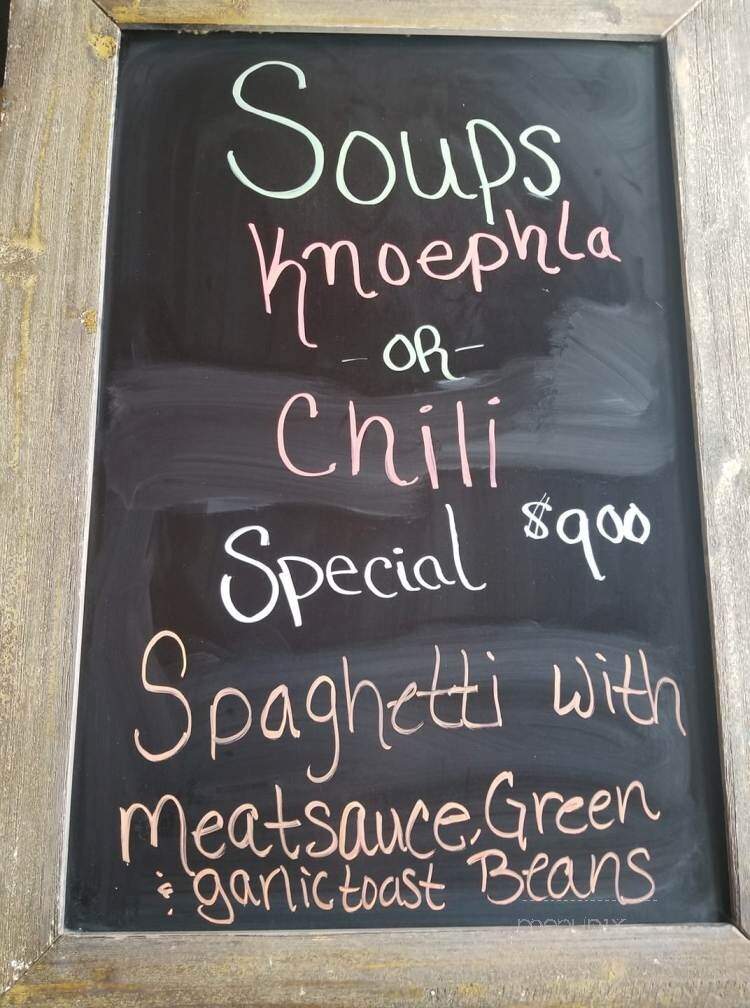 Soups
Knoephla
-OR-
Chili
Special $900
Spaghetti with
Meatsauce, Green
& garlic toast Beans
menupix